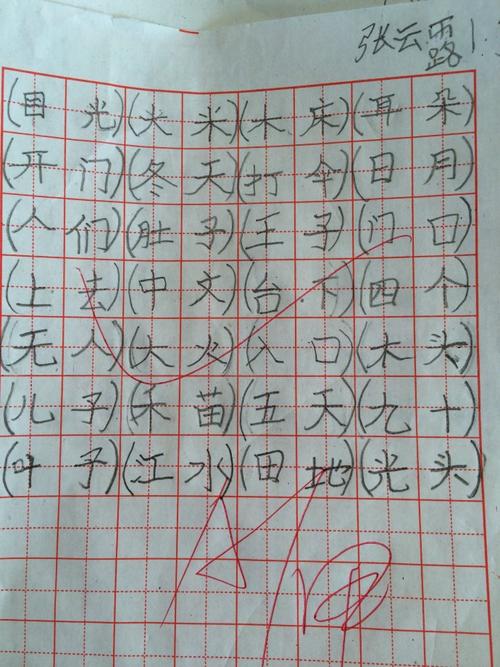 张云露
(目光)(大米)(木床)(耳朵)
(开门)(冬天)(打伞)(日月)
(人们)(肚子)(王子)(门口)
(上去)(中文)(台下)(四个)
(无人)(大火)(入口)(木头)
(儿子)(禾苗)(五天)(九十)
(叶子)(江水)(田地)(光头)